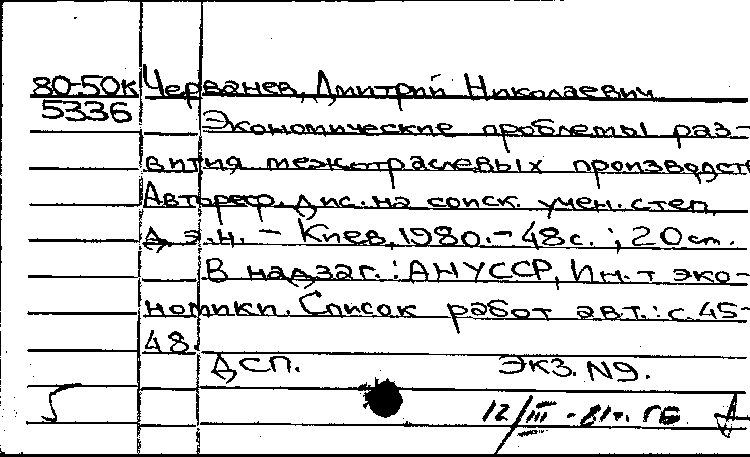 80-50к Черванев, Дмитрий Николаевич
5336
Экономические проблемы раз-
вития межотраслевых производств
Автореф. дис. на соиск. учен. степ.
д. э. н. – Киев, 1980. – 48 с. ; 20 см.
В надзаг. : АН УССР, Ин-т эко-
номики. Список работ авт. : с. 45-
48.
ДСП. ЭКЗ. N9.
12/III - 81г. ГБ